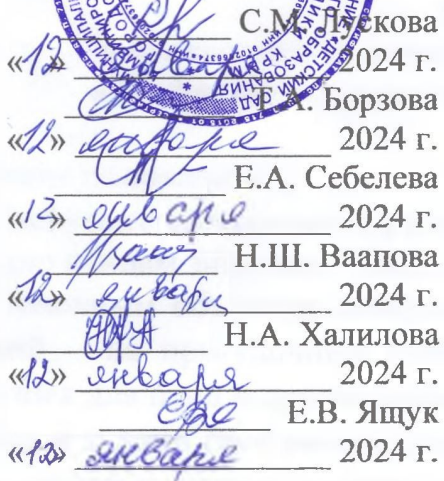 С.М. Лускова
«12» января 2024 г.
Борзова
«12» января 2024 г.
Е.А. Себелева
«12» января 2024 г.
Н.Ш. Ваапова
«12» января 2024 г.
Н.А. Халилова
«12» января 2024 г.
Е.В. Ящук
«12» января 2024 г.